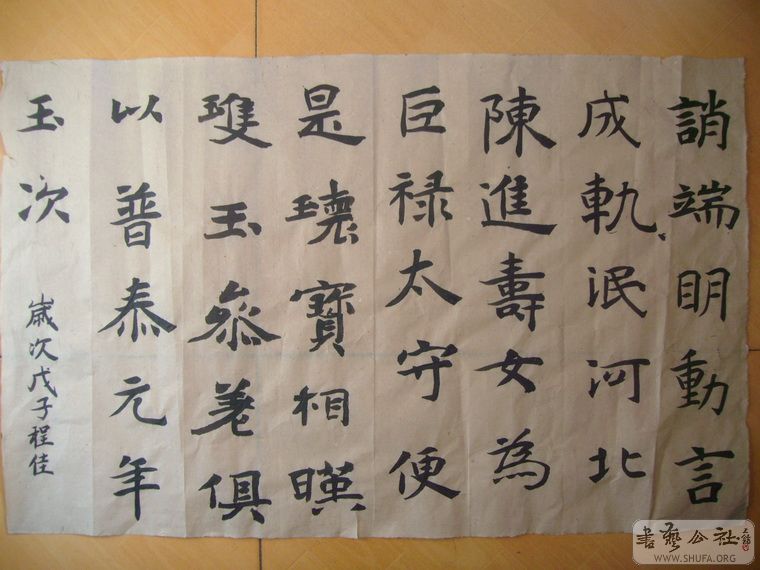 誚端明動言
成軌泯河北
陳進壽女為
巨禄太守便
是瓌寶相暎
瓊玉叅差俱
以普泰元年
玉次
歲次戊子程佳
書藝公社
WWW.SHUFA.ORG